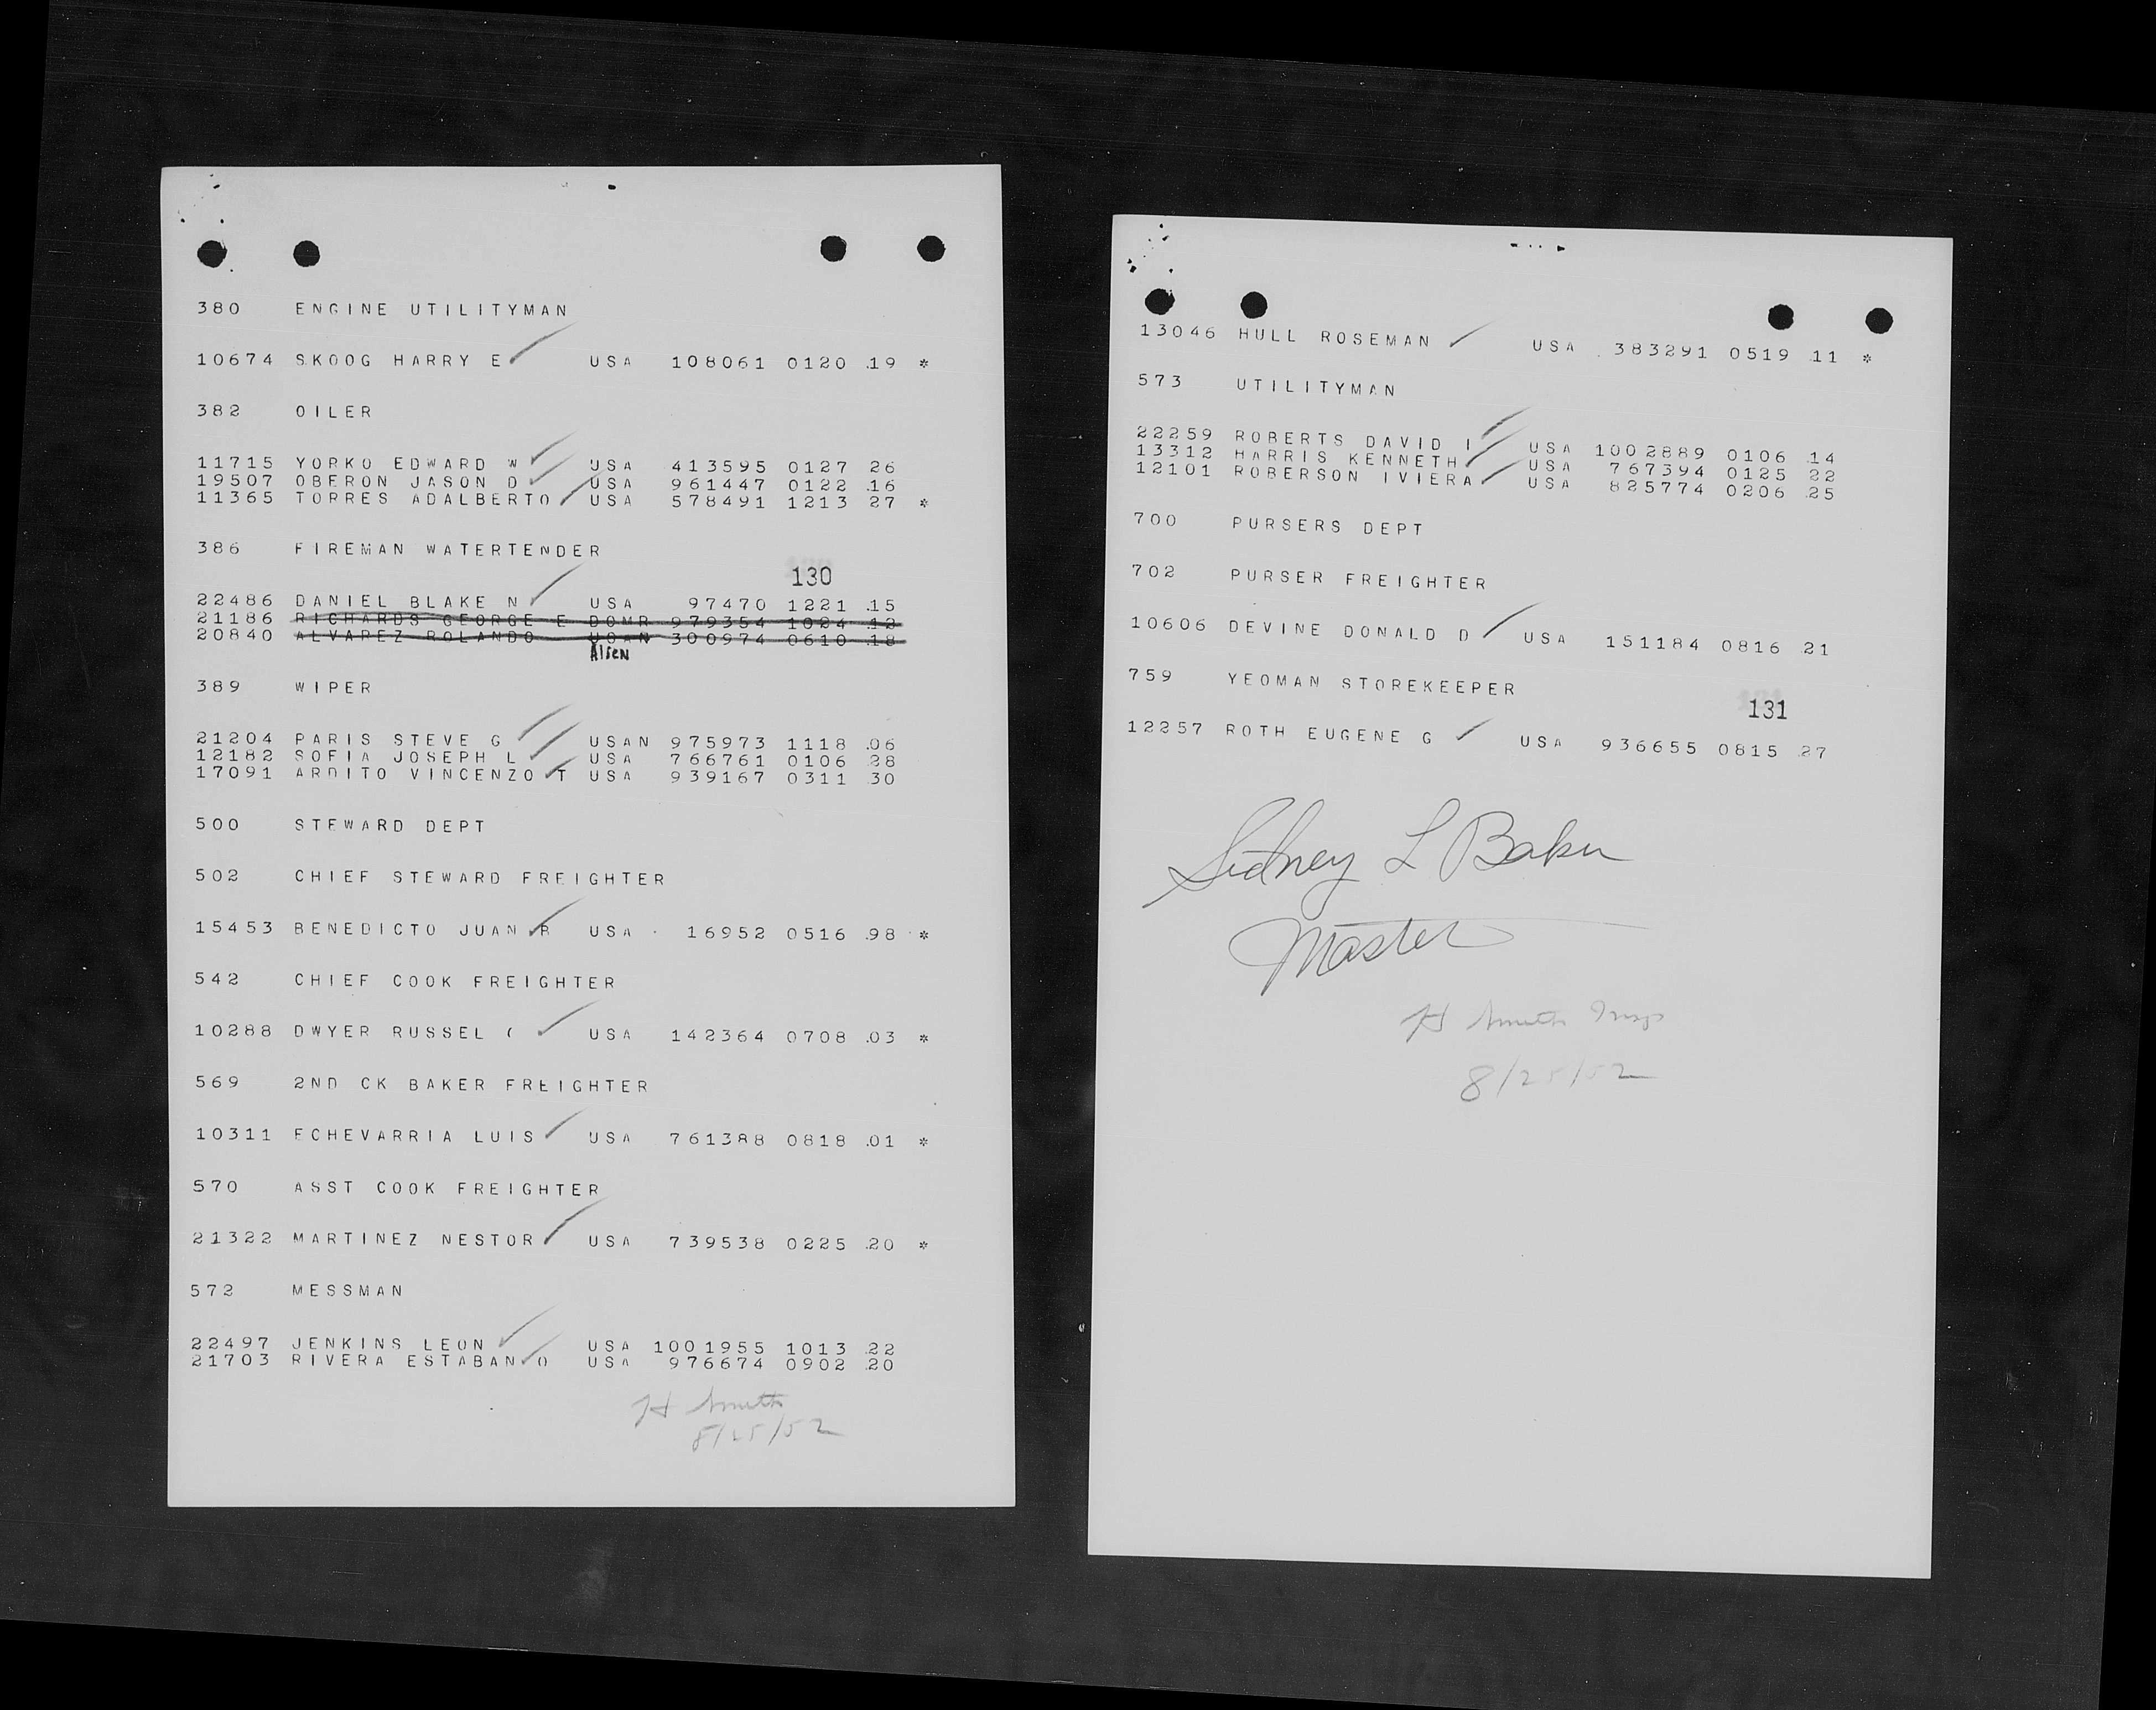 380 ENGINE UTILITYMAN
10674 SKOOG HARRY E USA 108061 0120 .19 *
382 OILER
11715 YORKO EDWARD W USA 413595 0127 26
19507 OBERON JASON D USA 961447 0122 .16
11365 TORRES ADALBERTO USA 578491 1213 27 *
386 FIREMAN WATERTENDER
130
22486 DANIEL BLAKE N USA 97470 1221 .15
21186 RICHARDS GEORGE E DOMR 979354 1024 .12
20840 ALVAREZ ROLANDO USAN 300974 0610 .18
Alien
389 WIPER
21204 PARIS STEVE G USAN 975973 1118 .06
12182 SOFIA JOSEPH L USA 766761 0106 .28
17091 ARDITO VINCENZO T USA 939167 0311 .30
500 STEWARD DEPT
502 CHIEF STEWARD FREIGHTER
15453 BENEDICTO JUAN R USA 16952 0516 .98 *
542 CHIEF COOK FREIGHTER
10288 DWYER RUSSEL C USA 142364 0708 .03 *
569 2ND CK BAKER FREIGHTER
10311 ECHEVARRIA LUIS USA 761388 0818 .01 *
570 ASST COOK FREIGHTER
21322 MARTINEZ NESTOR USA 739538 0225 .20 *
572 MESSMAN
22497 JENKINS LEON USA 1001955 1013 .22
21703 RIVERA ESTABAN O USA 976674 0902 .20
H Smith
8/25/52
13046 HULL ROSEMAN USA 383291 0519 .11 *
573 UTILITYMAN
22259 ROBERTS DAVID I USA 1002889 0106 .14
13312 HARRIS KENNETH USA 767394 0125 22
12101 ROBERSON IVIERA USA 825774 0206 .25
700 PURSERS DEPT
702 PURSER FREIGHTER
10606 DEVINE DONALD D USA 151184 0816 .21
759 YEOMAN STOREKEEPER
131
12257 ROTH EUGENE G USA 936655 0815 .27
Sidney L Baker
Master
H Smith Insp
8/25/52